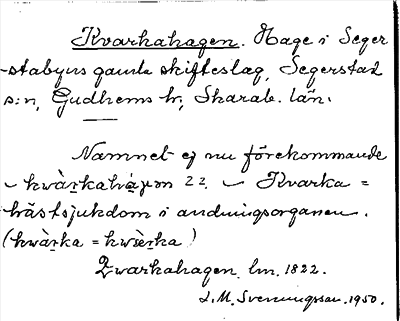 Kvarkahagen. Hage i Seger
-stabyns gamla skifteslag, Segerstad
s:n, Gudhems hr, Skarab. län.
Namnet ej nu förekommande
~ kwàrkahaγɷn 22. ~ Kvarka =
hästsjukdom i andningsorganen.
(kwàrka = kwèrka)
Qwarkahagen. lm. 1822.
L. M. Svenungsson. 1950.